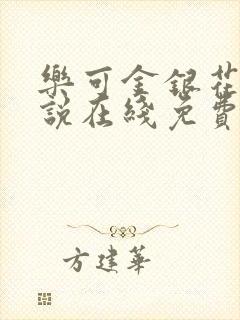 樂可金銀花
說在綫免費
方建華